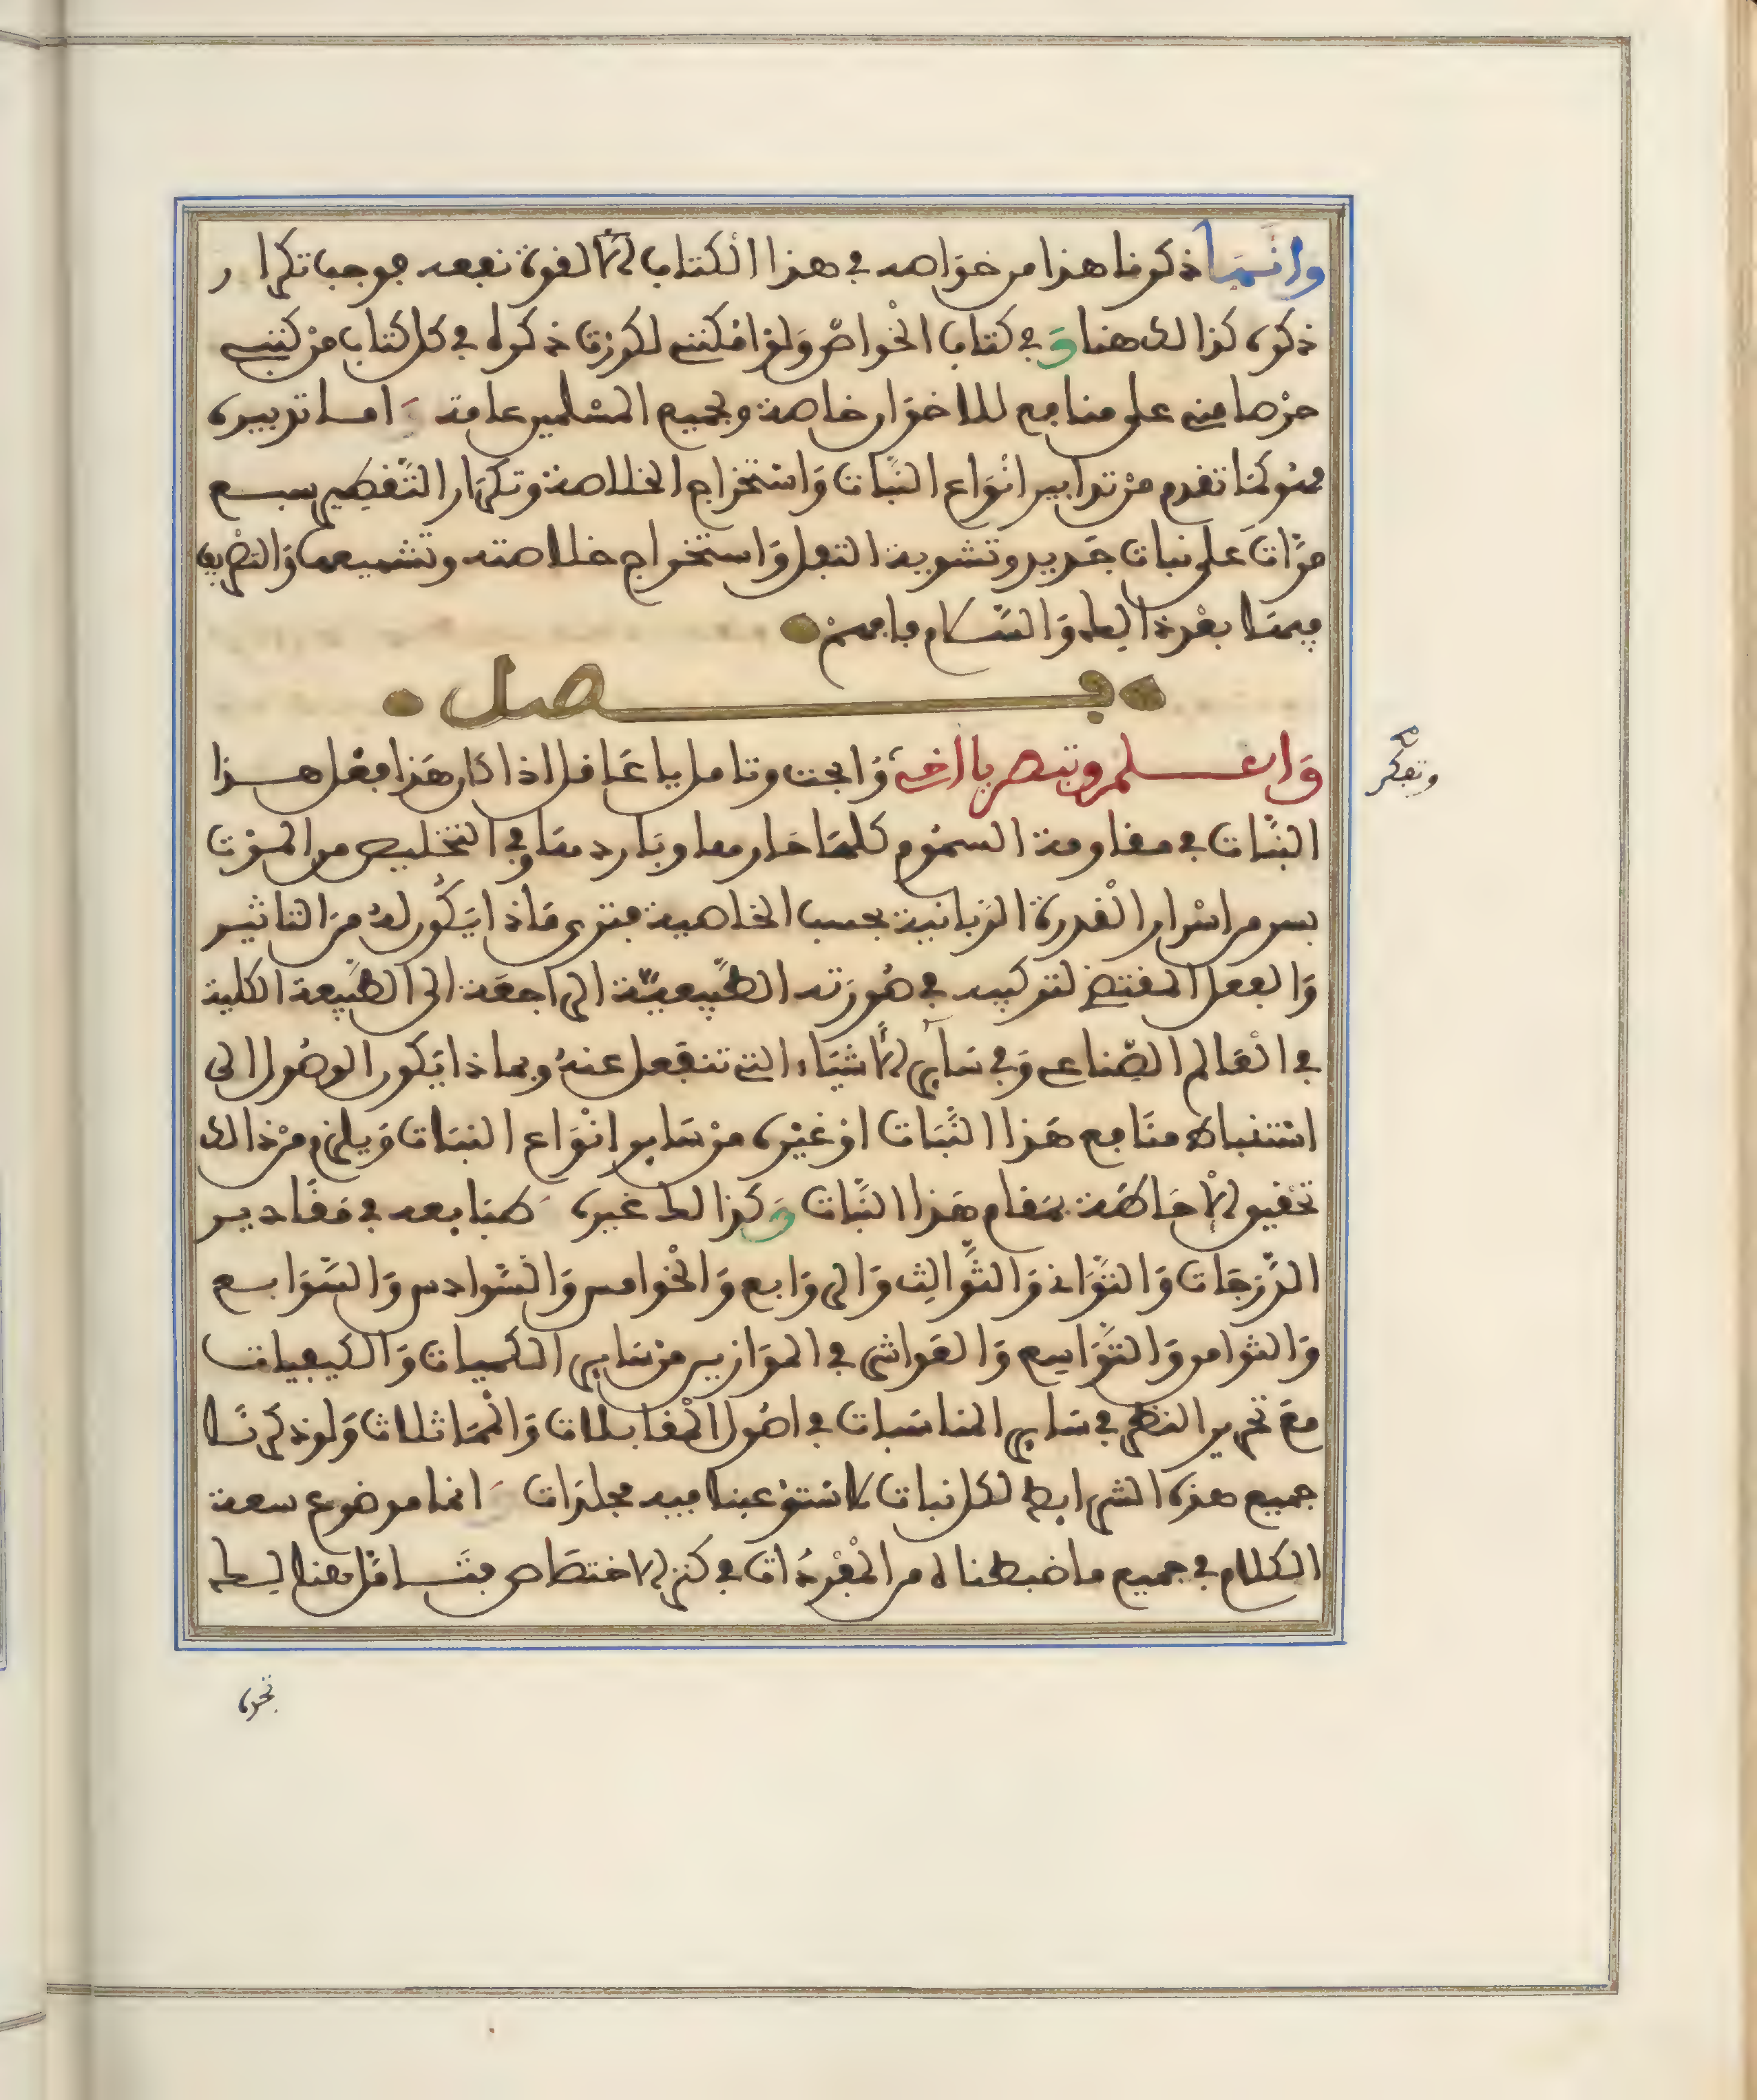 وانما ذكرنا هذا من خواصه في هذا الكتاب لقوة نفعه فوجب تكرار
ذكره كذالك هنا وَفي كتاب الخواص وَلو امكنني لكررت ذكره في كل كتاب من كتبي
حرصا مني على منافع للاخوان خاصة ولجميع المسلمين عامة اما تدبيره
فهو كما تقدم من تدابير انواع النبات وَاستخراج الخلاصة وتكرار التقطير سبع
مرّات على نبات جديد وتشوية الثفل وَاستخراج خلاصته وتشميعها وَالتصريف
فيما بعد ذالك وَالسّلام فافهم
فصل
وَاعلم وتبصر يا اخي وَابحث وتامل يا عاقل اذا كان هَذا فعل هذا
وتفكر صح
النبات في مقاومة السموم كلها حارها وبَاردها وفي التخليص من الموْت
بسر من اسْرار القدرة الربانية بحسب الخاصية فترى مَاذا يَكُون لهُ من التاثير
وَالفعل المقتضي لتركيبه في صُورَته الطّبيعيّة الراجعَة الى الطّبيعة الكلية
في الْعَالم الصّناعي وَفي سَاير الاشيَاء التي تنفعل عنهُ وبماذا يَكون الوصُول الى
استنباط منَافع هَذا النّبَات اوْ غيْره منْ سَاير انْوَاع النبَات وَيلزم منْ ذالك
تحْقيق الاحَاطَة بمَقام هَذا النّبَات وَكذالك غيره طبَايعه في مَقَادير
الدّرَجَات وَالثّوَاني وَالثّوالِث وَالروَابع وَالخْوامس وَالسّوادس وَالسّوَابع
وَالثوامن وَالتّوَاسِع وَالعَواشر في الموَازين منْ سَاير الكميات وَالكيفيات
معَ تحْرير النظر في سَاير المناسَبات في اصُول المْقابلات وَالْممَاثلات وَلو ذكرنَا
جميع هذه الشرايط لكل نبات لاستوْعبنا فيه مجلدَات انما موضوع سعة
الكلام في جميع ما ضبطناه من الْمفْردَات في كنز الاختصَاص فتَامّل هنالك
تجده